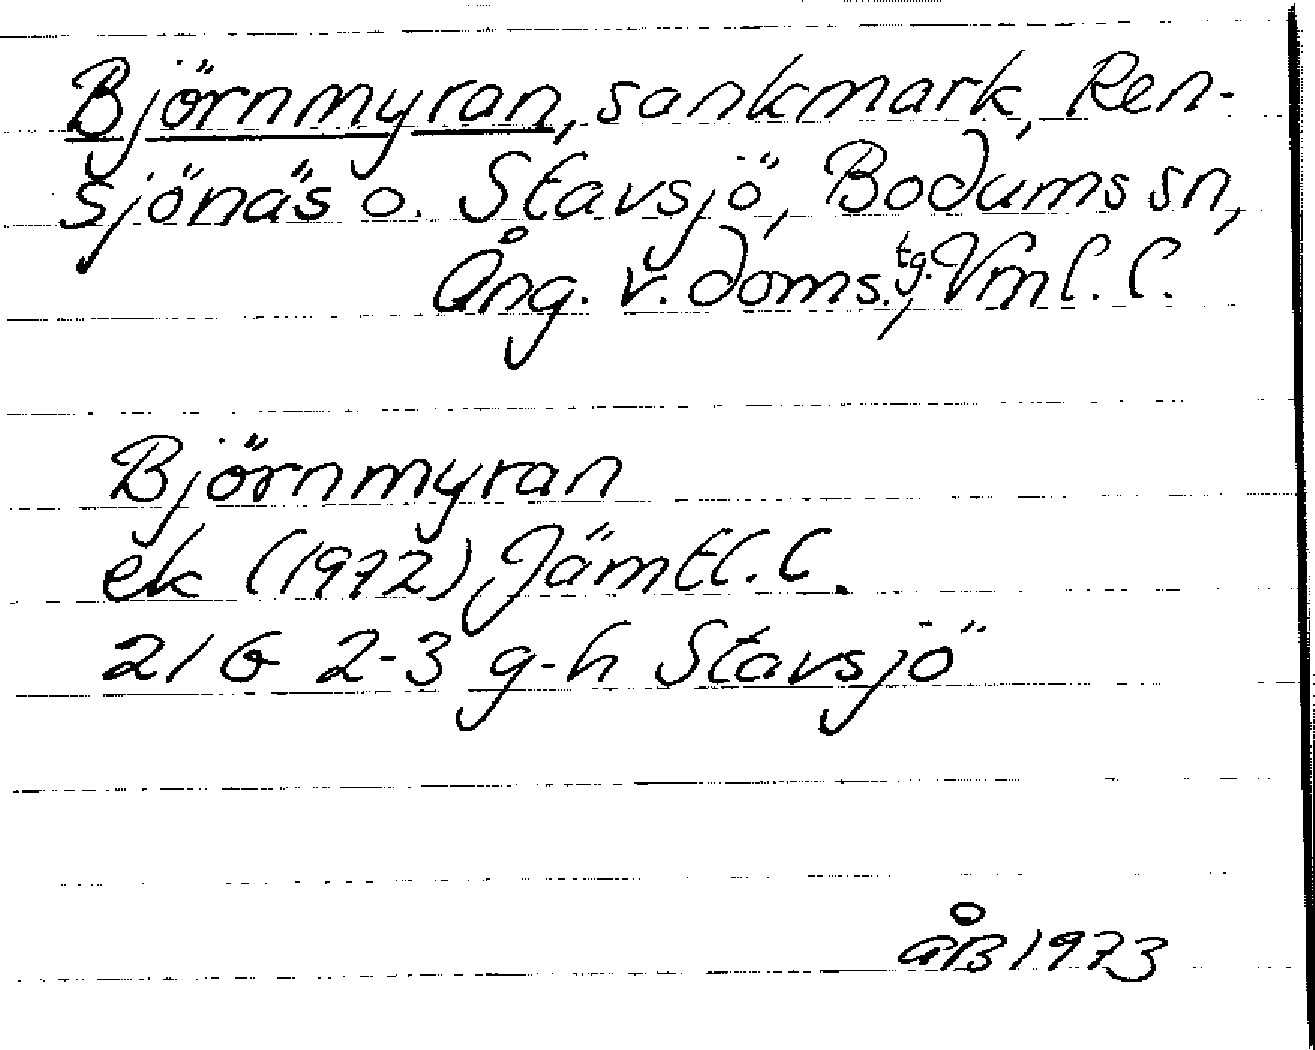 Björnmyran, sankmark, Ren-
sjönäs o. Stavsjö, Bodums sn,
Ång. v. doms.tg., Vml. l.
Björnmyran
ek (1972) Jämtl. l.
21 G 2-3 g-h Stavsjö
ÅB 1973